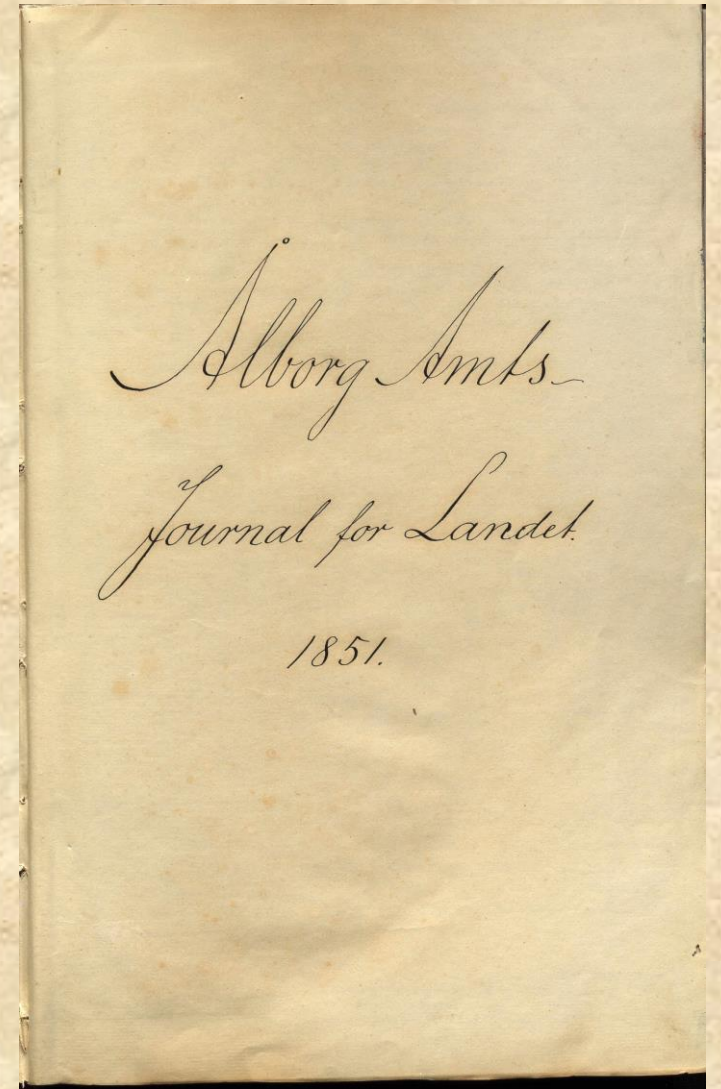 Ålborg Amts-
Journal for Landet.
1851.